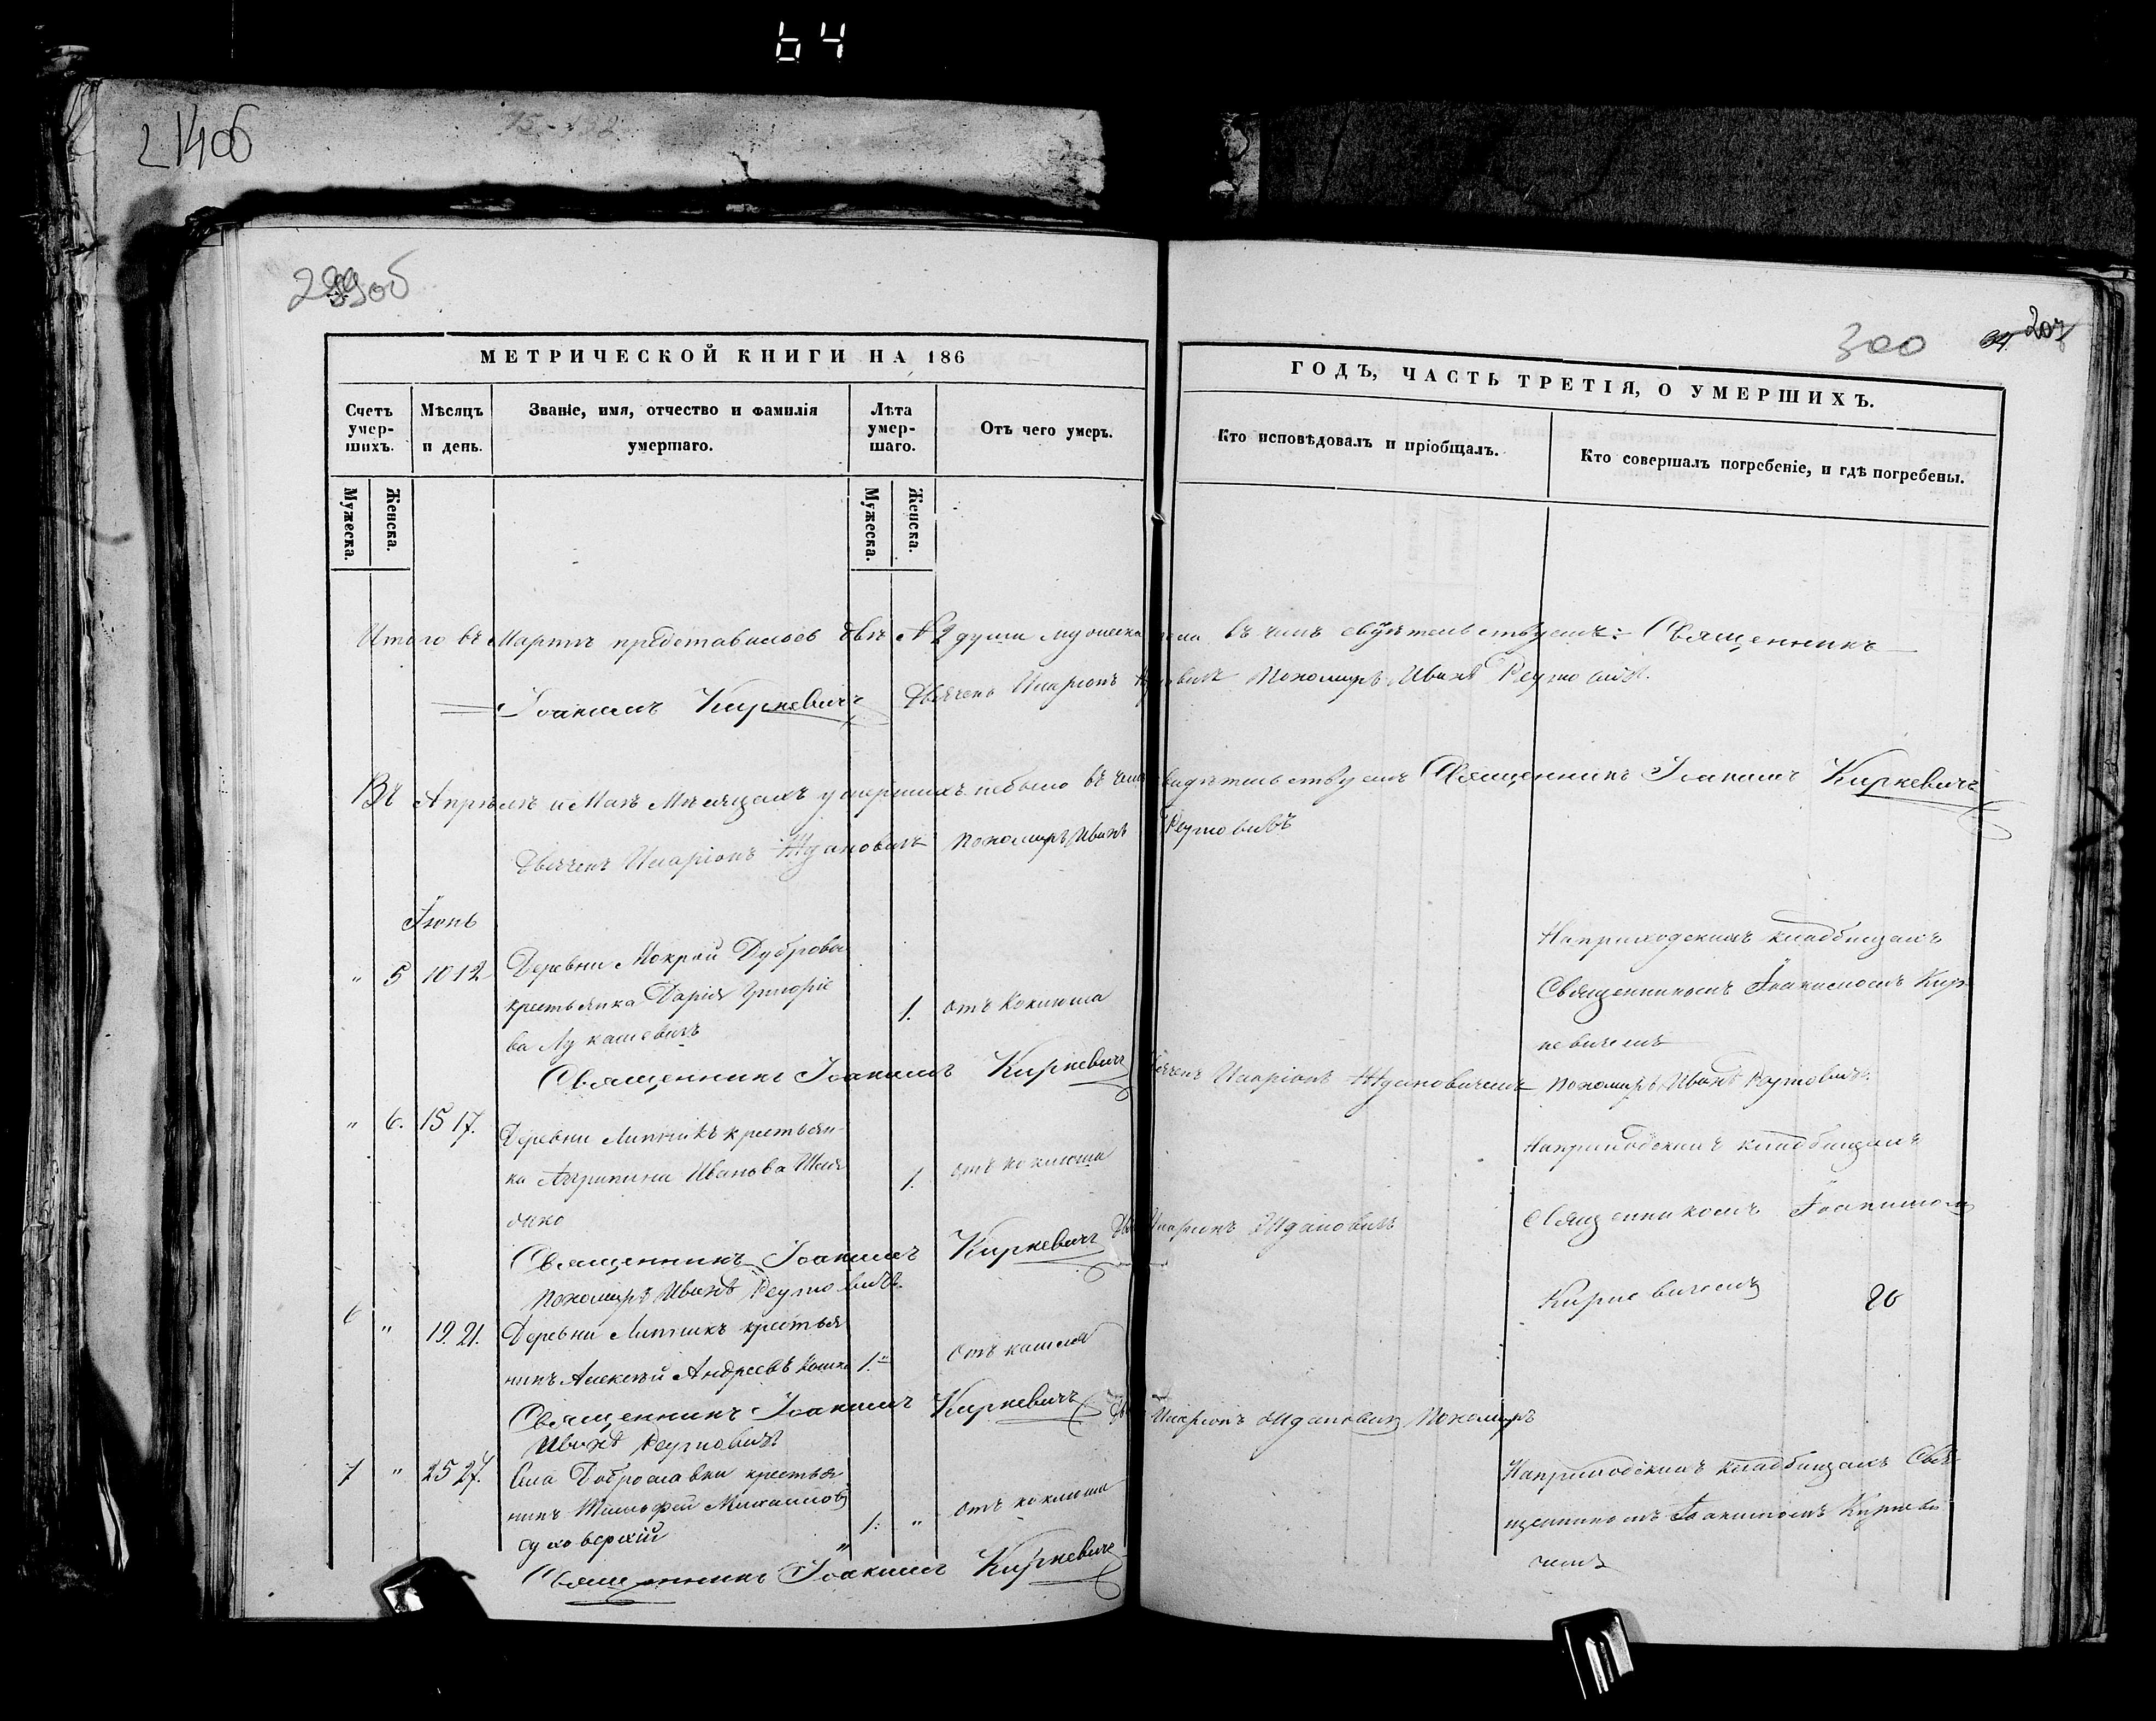 64
21406
299об
300
МЕТРИЧЕСКОЙ КНИГИ НА 186
ГОДЪ, ЧАСТЬ ТРЕТІЯ, О УМЕРШИХЪ.
Счетъ умер-шихъ.
Мѣсяцъ и день.
Званіе, имя, отчество и фамилія умершаго.
Лѣта умер-шаго.
Отъ чего умеръ.
Кто исповѣдовалъ и пріобщалъ.
Кто совершалъ погребеніе, и гдѣ погребены.
Мужеска.
Женска.
Мужеска.
Женска.
Итого въ Мартѣ 2 души въ чемъ свидѣтельствуемъ: Священникъ
Іоакимъ Киркевичъ Дьячекъ Иларіонъ Пономаръ Иванъ Реутовичъ.
Въ Апрѣлѣ и Маѣ Мѣсяцахъ умершихъ небыло въ чемъ свидѣтельствуемъ Священникъ Іоакимъ Киркевичъ
Дьячекъ Иларіонъ Ждановичъ Пономаръ Иванъ Реутовичъ
Іюнь
" 5 10 12
Деревни Мокрой Дубровы
крестьянка Дарія Григоріе
ва Лукашевичъ
1.
отъ коклюша
Наприходскихъ кладбищахъ
Священникомъ Іоакимомъ Кир
кевичемъ
Священникъ Іоакимъ Киркевичъ Дьячекъ Иларіонъ Ждановичемъ Пономаръ Иванъ Реутовичъ.
" 6. 15 17.
Деревни Липникъ крестьян-
ка Агрипина Иванова
1.
отъ коклюша
Наприходскихъ кладбищахъ
Священникомъ Іоакимомъ
Киркевичемъ
Священникъ Іоакимъ Киркевичъ Иларіонъ Ждановичъ
Пономаръ Иванъ Реутовичъ.
6 " 19. 21.
Деревни Липникъ крестья
нинъ Алексѣй Андреевъ
1. "
отъ кашля
Священникъ Іоакимъ Киркевичъ Иларіонъ Ждановичъ Пономаръ
Иванъ Реутовичъ
7 " 25 27.
Села Доброславки крестья
нинъ Тимофей Михаиловъ
Суховерхій
1. "
отъ коклюша
Наприходскихъ кладбищахъ Свя-
щенникомъ Іоакимомъ Киркеви
чемъ
Священникъ Іоакимъ Киркевичъ